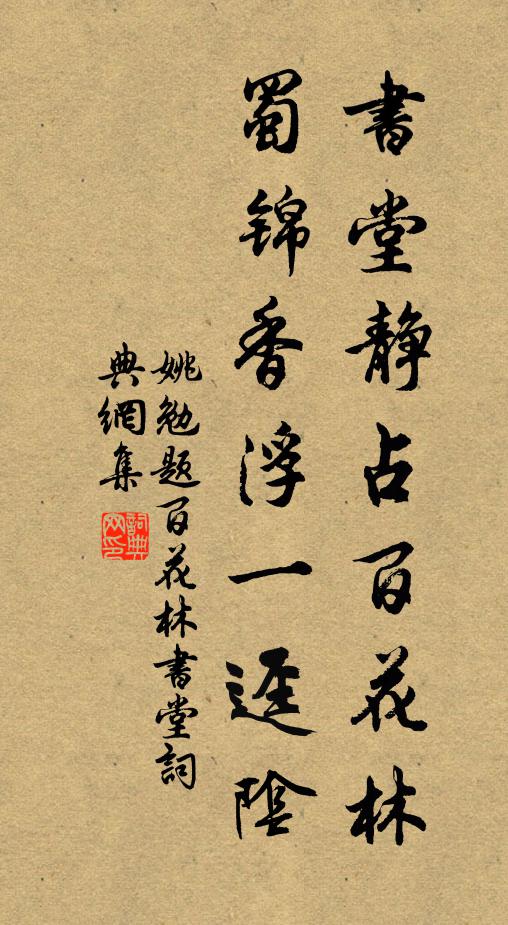 書堂靜占百花林
蜀錦香浮一逕陰
姚勉題百花林書堂詞
典網集
詞典
网印